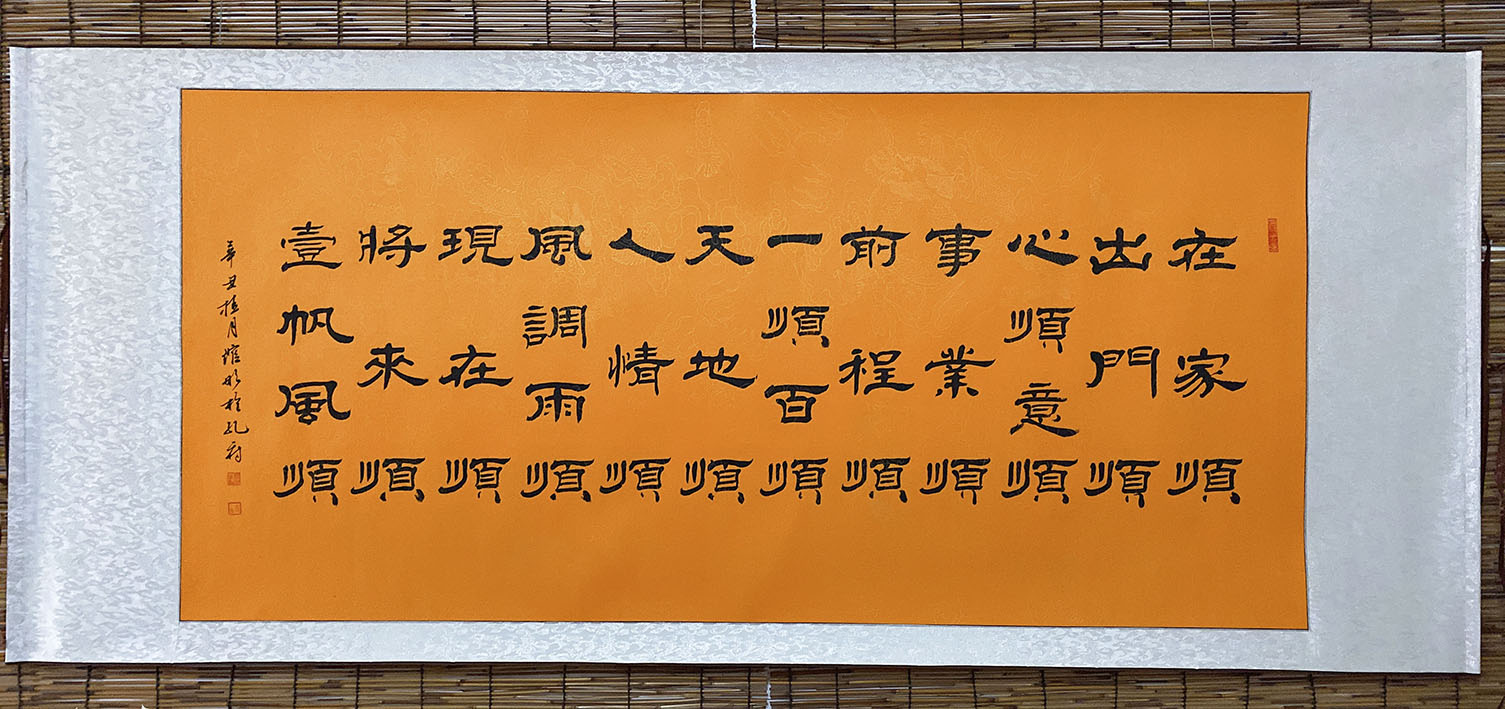 在家順
出門順
心順意順
事業順
前程順
一順百順
天地順
人情順
風調雨順
現在順
將來順
壹帆風順
辛丑桂月 於孔府